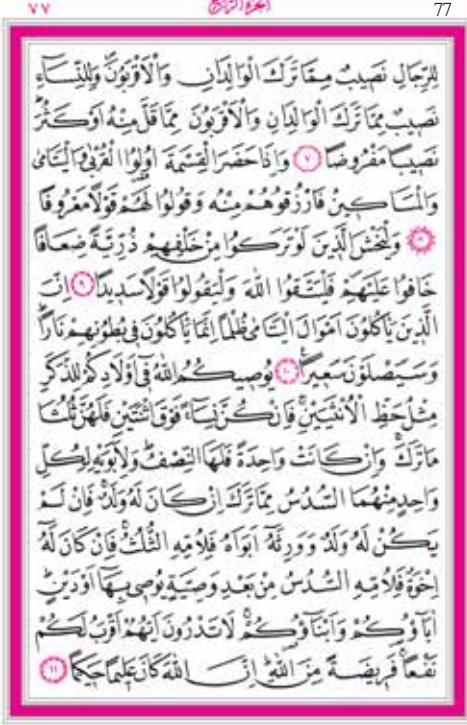 ٧٧ الجزء الرابع 77
لِلرِّجَالِ نَصِيبٌ مِمَّا تَرَكَ الْوَالِدَانِ وَالْأَقْرَبُونَ وَلِلنِّسَاءِ
نَصِيبٌ مِمَّا تَرَكَ الْوَالِدَانِ وَالْأَقْرَبُونَ مِمَّا قَلَّ مِنْهُ أَوْ كَثُرَ
نَصِيبًا مَفْرُوضًا ٧ وَإِذَا حَضَرَ الْقِسْمَةَ أُولُوا الْقُرْبٰى وَالْيَتَامٰى
وَالْمَسَاكِينُ فَارْزُقُوهُمْ مِنْهُ وَقُولُوا لَهُمْ قَوْلًا مَعْرُوفًا
٨ وَلْيَخْشَ الَّذِينَ لَوْ تَرَكُوا مِنْ خَلْفِهِمْ ذُرِّيَّةً ضِعَافًا
خَافُوا عَلَيْهِمْ فَلْيَتَّقُوا اللّٰهَ وَلْيَقُولُوا قَوْلًا سَدِيدًا ٩ إِنَّ
الَّذِينَ يَأْكُلُونَ أَمْوَالَ الْيَتَامٰى ظُلْمًا إِنَّمَا يَأْكُلُونَ فِي بُطُونِهِمْ نَارًا
وَسَيَصْلَوْنَ سَعِيرًا ١٠ يُوصِيكُمُ اللّٰهُ فِي أَوْلَادِكُمْ لِلذَّكَرِ
مِثْلُ حَظِّ الْأُنْثَيَيْنِ فَإِنْ كُنَّ نِسَاءً فَوْقَ اثْنَتَيْنِ فَلَهُنَّ ثُلُثَا
مَا تَرَكَ وَإِنْ كَانَتْ وَاحِدَةً فَلَهَا النِّصْفُ وَلِأَبَوَيْهِ لِكُلِّ
وَاحِدٍ مِنْهُمَا السُّدُسُ مِمَّا تَرَكَ إِنْ كَانَ لَهُ وَلَدٌ فَإِنْ لَمْ
يَكُنْ لَهُ وَلَدٌ وَوَرِثَهُ أَبَوَاهُ فَلِأُمِّهِ الثُّلُثُ فَإِنْ كَانَ لَهُ
إِخْوَةٌ فَلِأُمِّهِ السُّدُسُ مِنْ بَعْدِ وَصِيَّةٍ يُوصِي بِهَا أَوْ دَيْنٍ
آبَاؤُكُمْ وَأَبْنَاؤُكُمْ لَا تَدْرُونَ أَيُّهُمْ أَقْرَبُ لَكُمْ
نَفْعًا فَرِيضَةً مِنَ اللّٰهِ إِنَّ اللّٰهَ كَانَ عَلِيمًا حَكِيمًا ١١